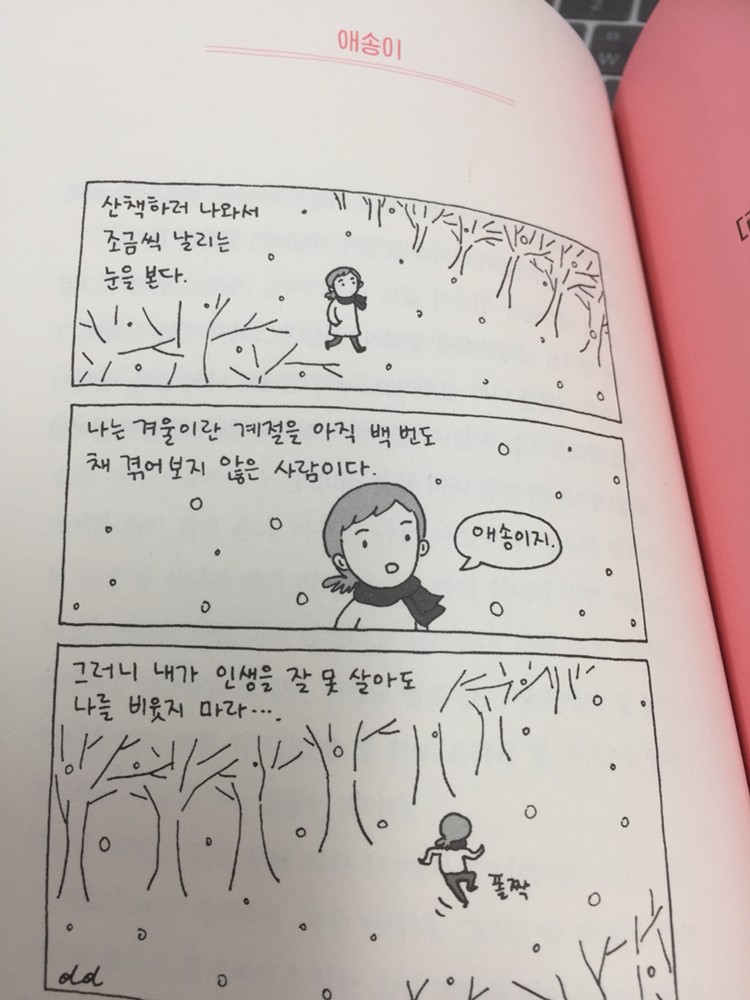 애송이
산책하러 나와서
조금씩 날리는
눈을 본다.
나는 겨울이란 계절을 아직 백 번도
채 겪어보지 않은 사람이다.
애송이지.
그러니 내가 인생을 잘 못 살아도
나를 비웃지 마라....
폴짝
dd